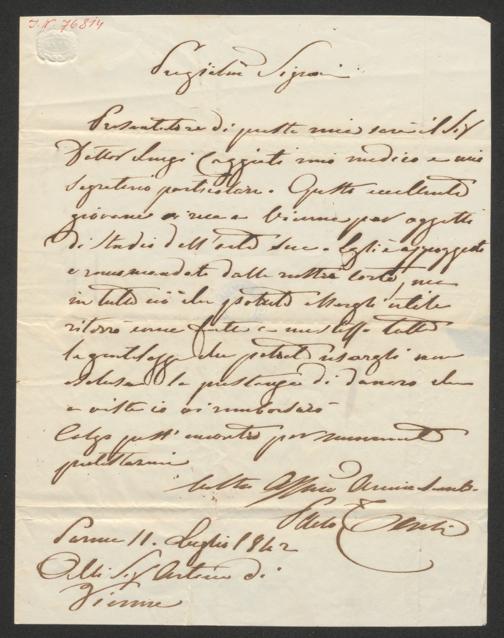 I.N. 76814
Pregiatmi Signori
Presentatore di questa mia sarà il Sig
Dottor Luigi Caggiati mio medico e mio
segretario particolare. Questo eccellente
giovane si reca a Vienna per oggetti
di studio dell'arte sua. Egli è appoggiato
e raccomandato dalla nostra corte, ma
in tutto ciò che potrete essergli utile
riterrò come fatte a me stesso tutte
le gentilezze che potrete usargli non
esclusa la prestanza di danaro che
a vista io vi rimborserò
Colgo quest'incontro per
protestarmi
Servitore
Parma 11. Luglio 1842
Alli Sig Artaria di
Vienna